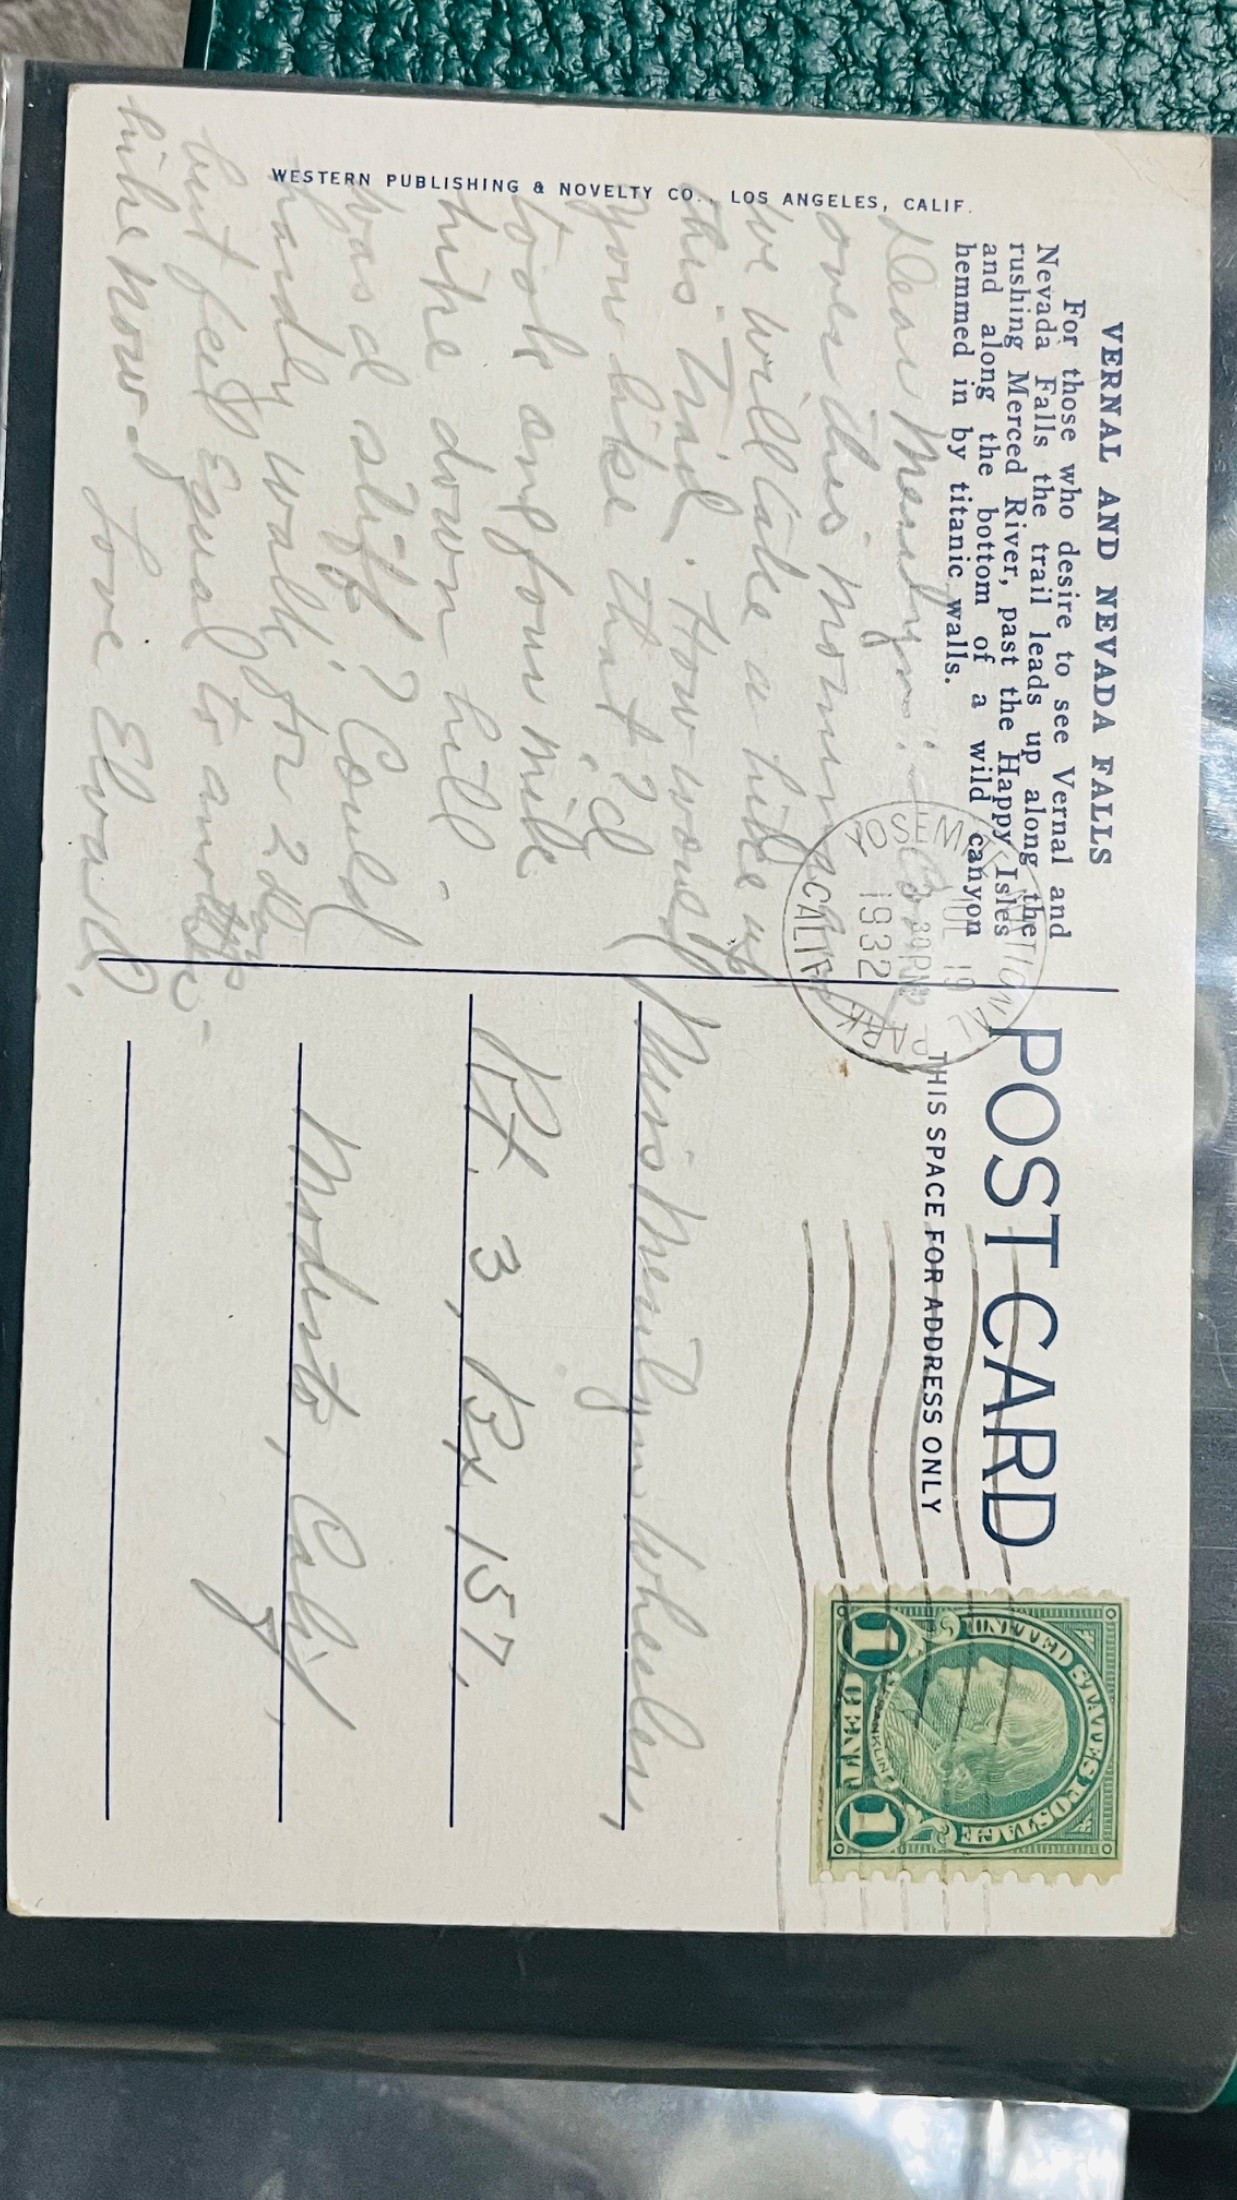 VERNAL AND NEVADA FALLS
For those who desire to see Vernal and
Nevada Falls the trail leads up along the
rushing Merced River, past the Happy Isles
and along the bottom of a wild canyon
hemmed in by titanic walls.
WESTERN PUBLISHING & NOVELTY CO., LOS ANGELES, CALIF.
Dear Merilyn: Came
over this morning
we will take a hike up
this trail. How would
you like that? I
took one four mile
hike down hill -
Was I stiff? Could
hardly walk for 2 days
but feel equal to another
hike now - Love Elva D.
POST CARD
THIS SPACE FOR ADDRESS ONLY
YOSEMITE NATIONAL PARK
JUL 19
30 PM
1932
CALIF.
UNITED STATES POSTAGE
FRANKLIN
1 CENT 1
Miss Merilyn Wheeler,
Rt. 3, Bx 157,
Modesto, Calif,